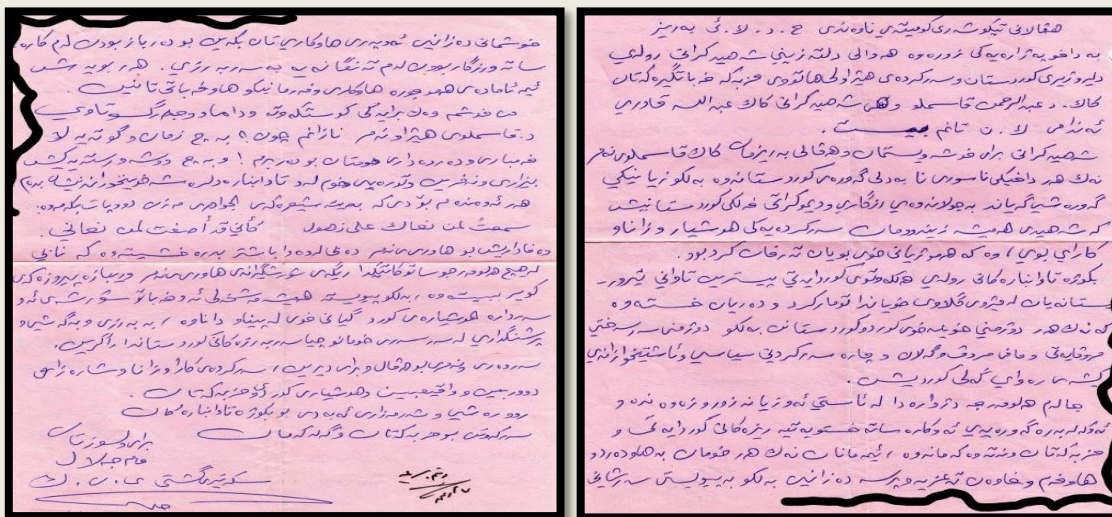 هەڤاڵانی تێکۆشەری کۆمیتەی ناوەندی ح . د . ک . ئی بەڕێز
بە داخ و پەژارەیەکی زۆرەوە هەواڵی دڵتەزێنی شەهیدکرانی ڕۆڵەی
دلێر و نزیری کوردستان و سەرکردەی هێژا و لێهاتوی حزبە خەباتگێڕەکەتان
کاک د. عبدالرحمن قاسملو و شەهیدکرانی کاک عبداللە قادری
ئەندامی ک . ن تانم بیست .
شەهیدکرانی برای خۆشەویستمان و هەڤاڵی بەڕێزمان کاک قاسملوی نەمر
نەک هەر داخێکی ناسۆری نا بە دلی گەورەی کوردستانەوە بەڵکو زیانێکی
گەورەشی گەیاند بە جوڵانەوەی ڕزگاری و دیموکراتی خەڵکی کوردستانیش
کە شەهیدی هەمیشە زیندومان سەرکردەیەکی هوشیار و زانا و
کارای بوو وە کە هەمو ژیانی خۆی بۆیان تەرخان کردبو .
بکوژە تاوانبارەکانی ڕۆڵەی هەڵکەوتوی کوردایەتی پیسترین تاوانی تیرۆر
ستانەیان لە مێژوی گڵاوی خۆیاندا تۆمار کرد و دەریان خستەوە
کە نەک هەر دوژمنی خوێنی کورد و کوردستانن بەڵکو دوژمنی سەرسەختی
مرۆڤایەتی و مافی مرۆڤ و گەلان و چارەسەرکردنی سیاسی و ئاشتیخوازانەی
کێشەی ڕەوای گەلی کوردیشن .
جا لەم هەلومەرجە دژوارەدا لە ئاستی ئەو زیانە زۆر و زەوەندە و
ئەو لەبەرە گەورەیەی ئەو کارەساتە خستویەتیە ڕیزەکانی کوردایەتی و
حزبەکەتان و بنەماڵەکەتانەوە ، ئێمەمانان نەک هەر خۆمان بە هاودەرد و
هاوخەم و خاوەن تەعزیە و پرسە دەزانین بەڵکو بە پێویستی سەرشانی
خۆشمانی دەزانین ئەوپەڕی هاوکاریتان بکەین بۆ دەربازبوون لەم کارە
ساتە و ڕزگاربوون لەم تەنگانەیە بە سەربەرزی . هەر بۆیەش
ئێمە ئامادەی هەمو جۆرە هاوکاری و فەرمانێکی هاوخەباتی تانین .
من خۆشم وەک برایەکی کۆستکەوتە و داماو و جەرگسوتاوی
د . قاسملوی هێژا و نەمر نازانم چۆن ؟ بە چ زمان و گوتەیە لا
خەمباری و دەردەداری خۆمتان بۆ دەرببڕم ! وە بە چ دوشە و ڕستەیەکیش
بێزاری و نەفرین و تورەیی خۆم لەو تاوانبارە دڵڕەشە خوێنخۆرانە نیشان بدەم
هەر ئەوەندەم بۆ دێ کە بەیتە شیعرەکەی جواهری مەزن دوپات بکەمەوە.
سمعتُ لمن نعاك على ذهول كأني قد أصغت لمن نعاني.
وەفاداریش بۆ هاوڕێی نەمر دەخالوەدا باشتر بەدەر خستەوە کە نابێ
لە هیچ هەلومەرج و ساتەکاتێکدا ڕێگەی تێکۆشەرانەی هاوڕێی نەمر و ڕێبازە پیرۆزەکەی
کوێر ببێتەوە ، بەڵکو پێویستە هەمیشە مەشخەڵی ئەو خەبات و شۆڕشەی ئەو
سەردارە هوشیارەی کورد گیانی خۆی لەپێناو داناوە ، بە بەرزی و بە گەشی و
پرشنگداری لە سەرسەری خۆمان و چیا سەربەرزەکانی کوردستاندا ڕاگرین .
سەروەری و نەمری بۆ هەڤاڵ و برای دێرین ، سەرکردەی کارا و زانا و شارەزای
دووربین و واقیعبین و هوشیاری کورد و حزبەکەتان .
ڕوو ڕەشی و شەرمەزاری ئەبەدی بۆ بکوژە تاوانبارەکان
سەرکەوتن بۆ حزبەکەتان و گەلەکەمان
برای دلسۆزتان
مام جلال
سکرتێری گشتی ی . ن . ک